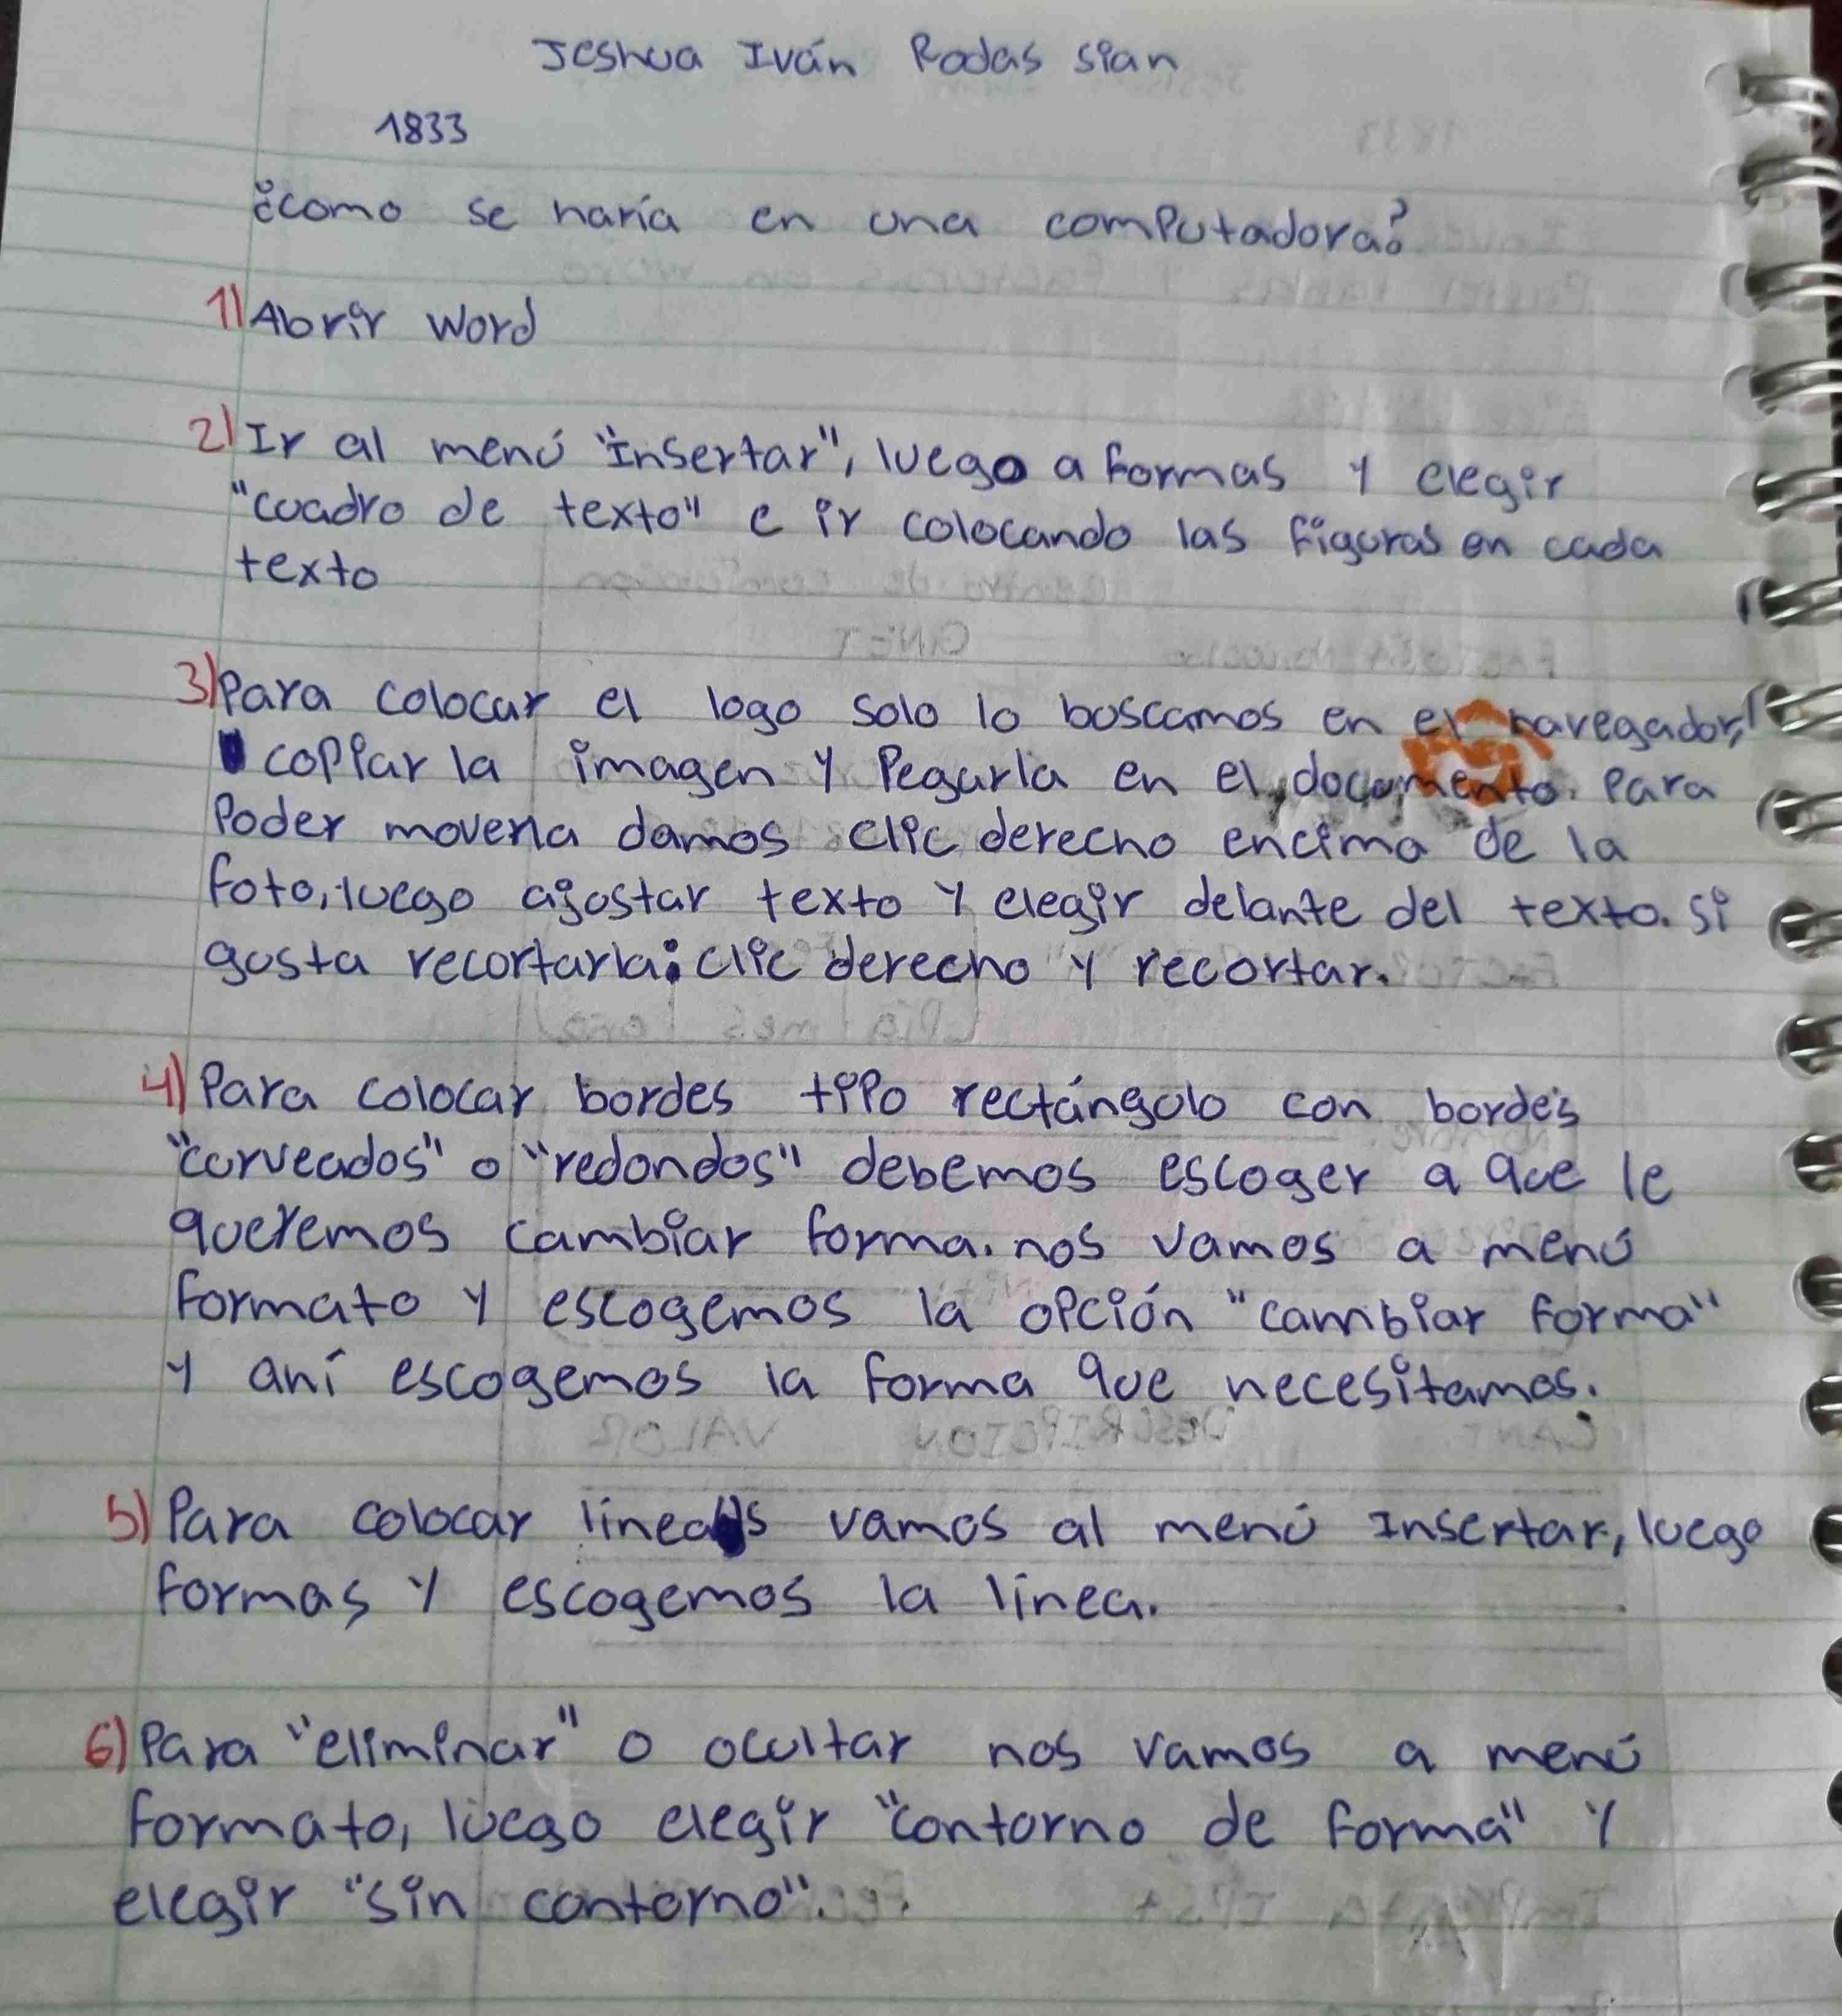 Jeshua Iván Rodas sian
1833
¿como se haría en una computadora?
1) Abrir word
2) Ir al menú "Insertar", luego a formas y elegir
"cuadro de texto" e ir colocando las figuras en cada
texto
3) Para colocar el logo solo lo buscamos en el navegador,
copiar la imagen y Pegarla en el documento. Para
Poder moverla damos clic derecho encima de la
foto, luego ajustar texto y elegir delante del texto. si
gusta recortarla: clic derecho y recortar.
4) Para colocar bordes tipo rectángulo con bordes
"curveados" o "redondos" debemos escoger a que le
queremos cambiar forma. nos vamos a menú
formato y escogemos la opción "cambiar forma"
y ahí escogemos la forma que necesitamos.
5) Para colocar líneas vamos al menú Insertar, luego
formas y escogemos la línea.
6) Para "eliminar" o ocultar nos vamos a menú
formato, luego elegir "contorno de forma" y
elegir "sin contorno".